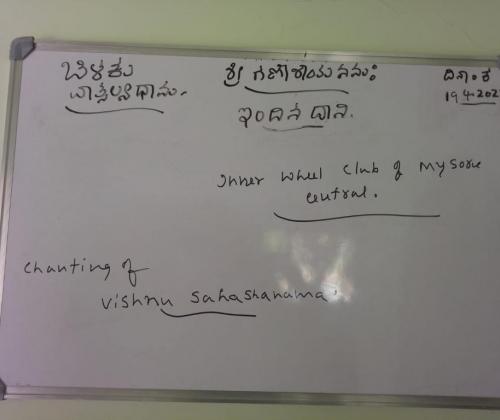 ಬೆಳಕು
ವಾತ್ಸಲ್ಯಧಾಮ.
ಶ್ರೀ ಗಣೇಶಾಯ ನಮಃ
ಇಂದಿನ ದಾನಿ.
ದಿನಾಂಕ
19 4-202
Inner wheel club of mysore
central.
Chanting of
vishnu sahashanama.